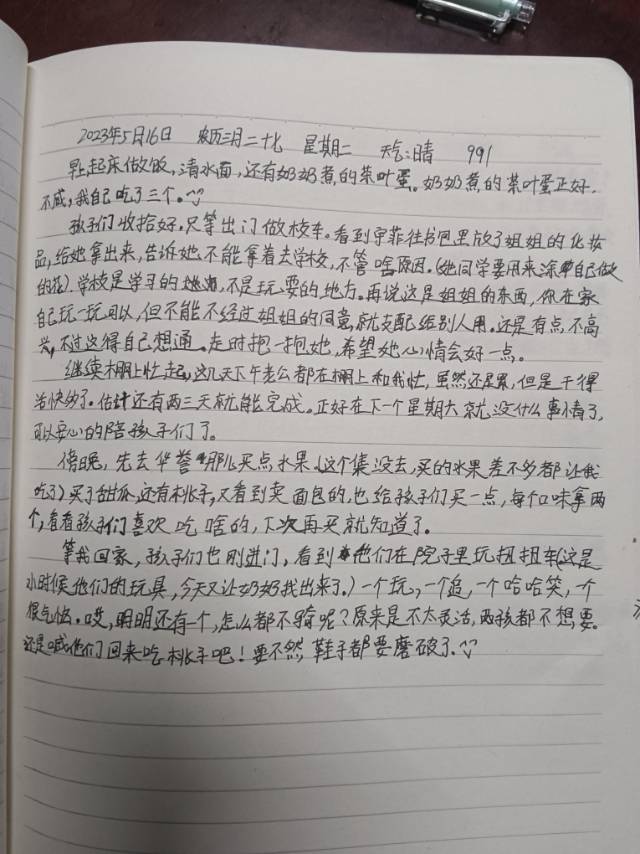 2023年5月16日 农历三月二十七 星期二 天气:晴 991
早上起床做饭,清水面,还有奶奶煮的茶叶蛋。奶奶煮的茶叶蛋正好,
不咸,我自己吃了三个。
孩子们收拾好,只等出门做校车。看到宇菲往书包里放了姐姐的化妆
品,给她拿出来,告诉她不能拿着去学校,不管啥原因。(她同学要用来涂自己做
的花)学校是学习的地方,不是玩耍的地方。再说这是姐姐的东西,你在家
自己玩一玩可以,但不能不经过姐姐的同意,就支配给别人用。还是有点不高
兴,不过这得自己想通。走时抱一抱她,希望她心情会好一点。
继续棚上忙起,这几天下午老公都在棚上和我忙,虽然还是累,但是干得
活快多了。估计还有两三天就能完成。正好在下一个星期六就没什么事情了,
可以安心的陪孩子们了。
傍晚,先去华誉那儿买点水果。(这个集没去,买的水果差不多都让我
吃了)买了甜瓜,还有桃子,又看到卖面包的,也给孩子们买一点,每个口味拿两
个,看看孩子们喜欢吃啥的,下次再买就知道了。
等我回家,孩子们也刚进门,看到他们在院子里玩扭扭车(这是
小时候他们的玩具,今天又让奶奶找出来了。)一个玩,一个追,一个哈哈笑,一个
很气恼。哎,明明还有一个,怎么都不骑呢?原来是不太灵活,两孩都不想要。
还是喊他们回来吃桃子吧!要不然,鞋子都要磨破了。